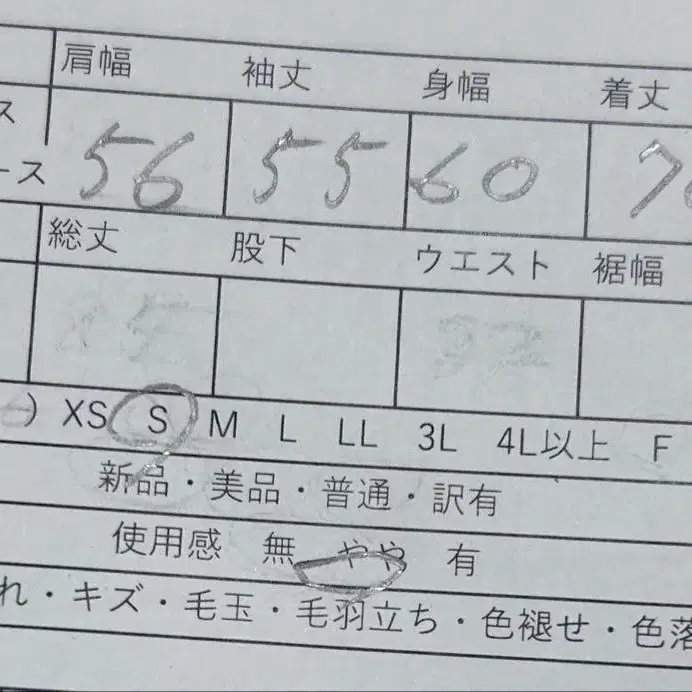 肩幅 袖丈 身幅 着丈
ス
ース 56 55 60
総丈 股下 ウエスト 裾幅
) XS S M L LL 3L 4L以上 F
新品・美品・普通・訳有
使用感 無 やや 有
れ・キズ・毛玉・毛羽立ち・色褪せ・色落